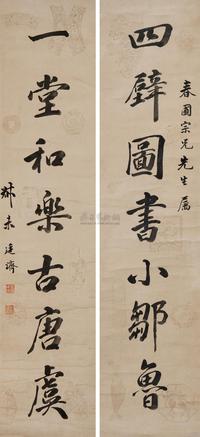 春圃宗兄先生属
四壁圖書小鄒魯
一堂和樂古唐虞
未廷濟